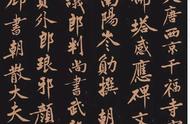 唐西京千福寺
塔感應碑文
南陽岑勛撰朝
議郎判尚書武
外郎琅邪顏
書朝散大夫